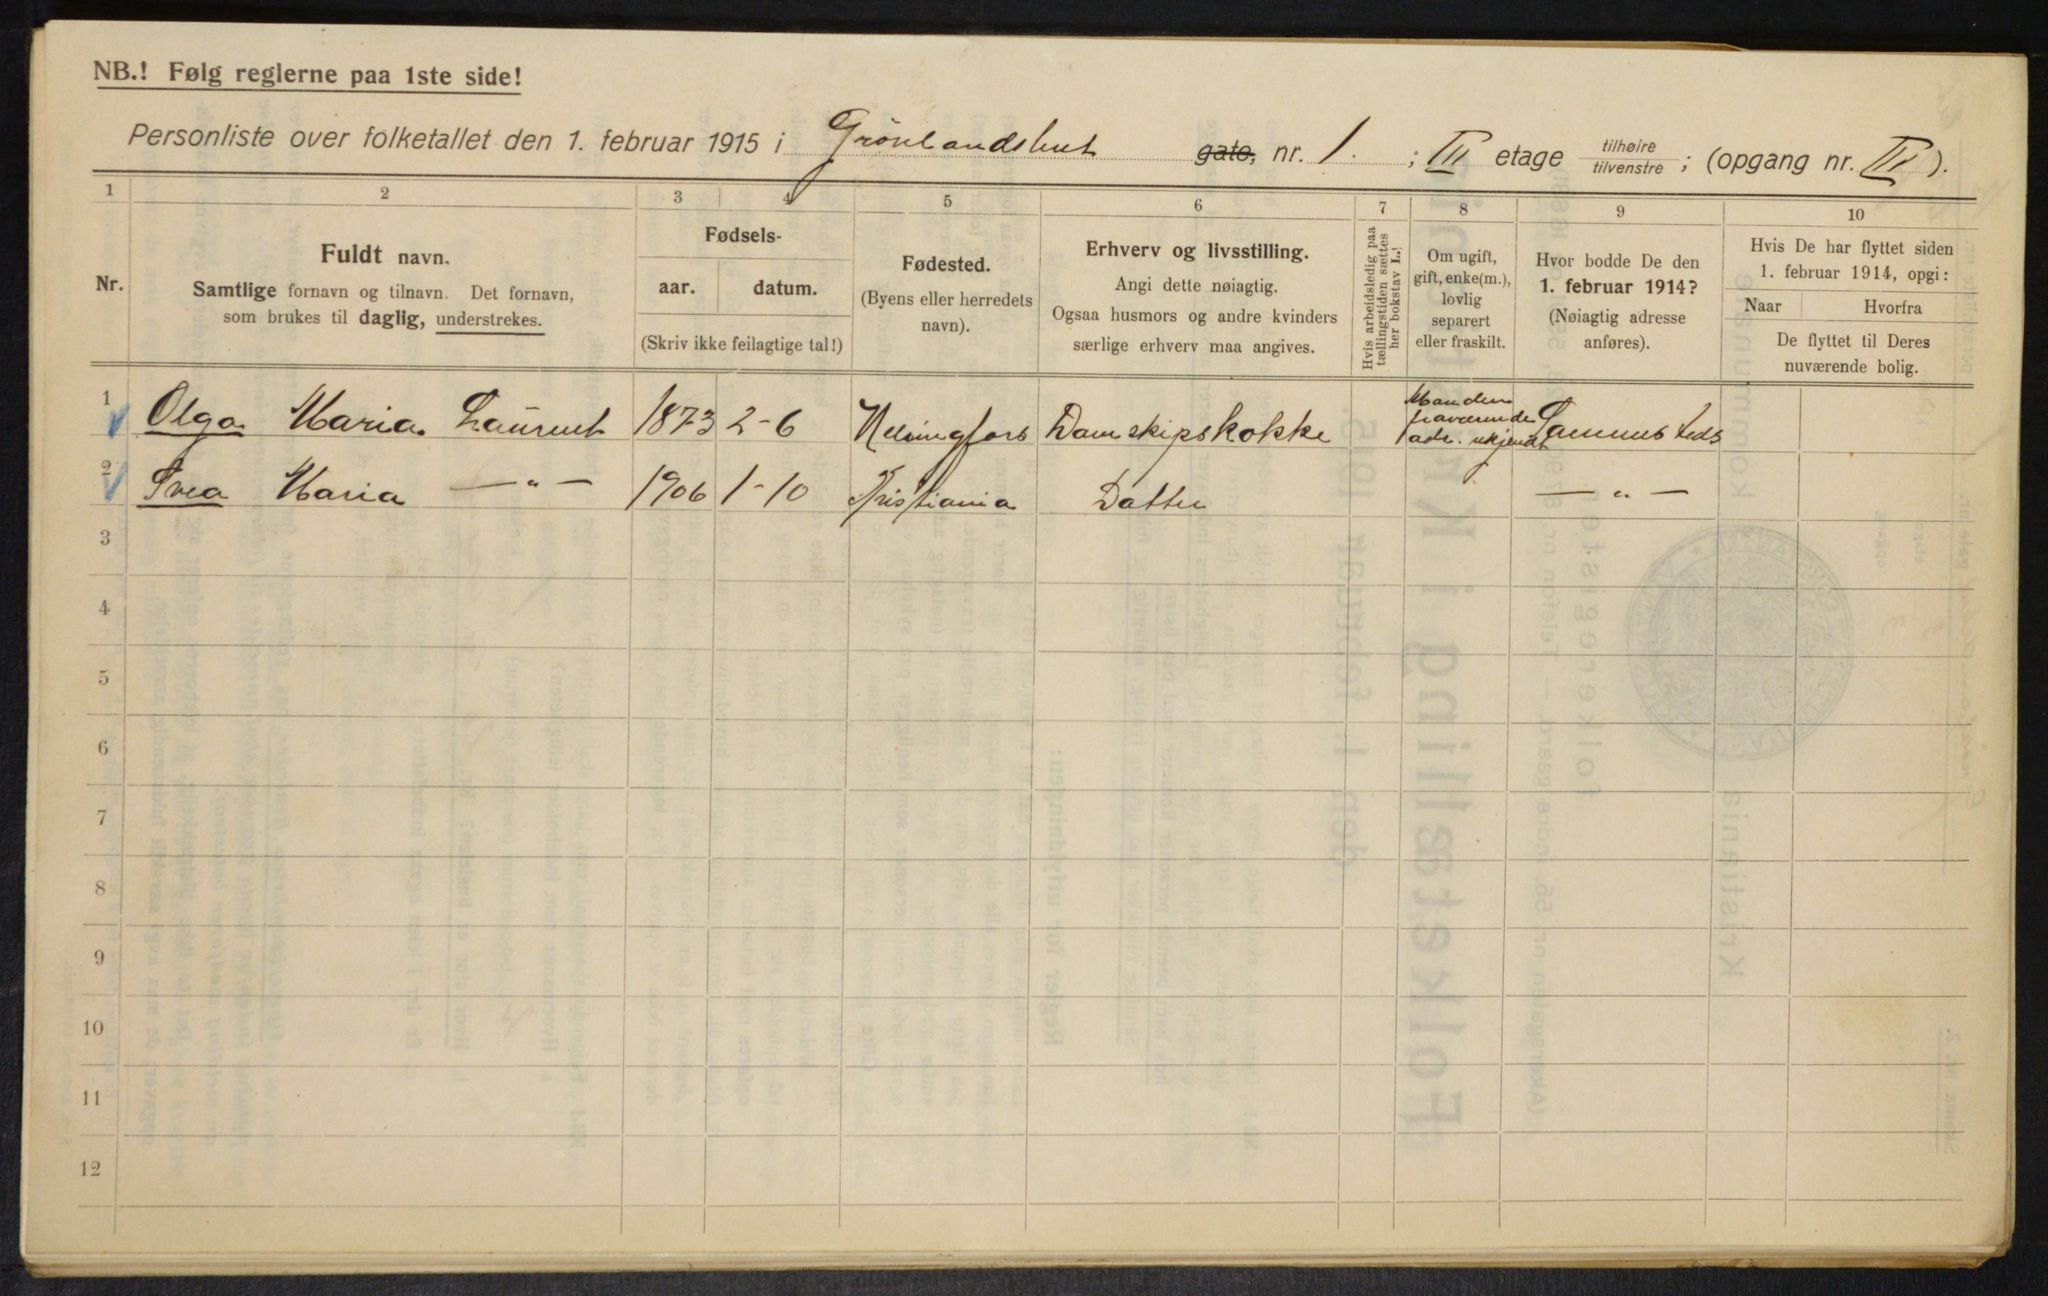 NB.! Følg reglerne paa 1ste side!
Personliste over folketallet den 1. februar 1915 i Grönlandsleret gate, nr. 1. ; III etage tilhøire tilvenstre ; (opgang nr. III ).
1 2 3 4 5 6 7 8 9 10
Nr.
Fuldt navn.
Samtlige fornavn og tilnavn. Det fornavn,
som brukes til daglig, understrekes.
Fødsels-
aar. datum.
(Skriv ikke feilagtige tal!)
Fødested.
(Byens eller herredets
navn).
Erhverv og livsstilling.
Angi dette nøiagtig.
Ogsaa husmors og andre kvinders
særlige erhverv maa angives.
Hvis arbeidsledig paa
tællingstiden sættes
her bokstav L.
Om ugift,
gift, enke(m.),
lovlig
separert
eller fraskilt.
Hvor bodde De den
1. februar 1914?
(Nøiagtig adresse
anføres).
Hvis De har flyttet siden
1. februar 1914, opgi:
Naar Hvorfra
De flyttet til Deres
nuværende bolig.
1 Olga Maria Laurent 1873 2-6 Helsingfors Damskipskokke Manden fraværende adr. ukjendt Sammesteds
2 Svea Maria —„— 1906 1-10 Kristiania Datter —„—
3
4
5
6
7
8
9
10
11
12